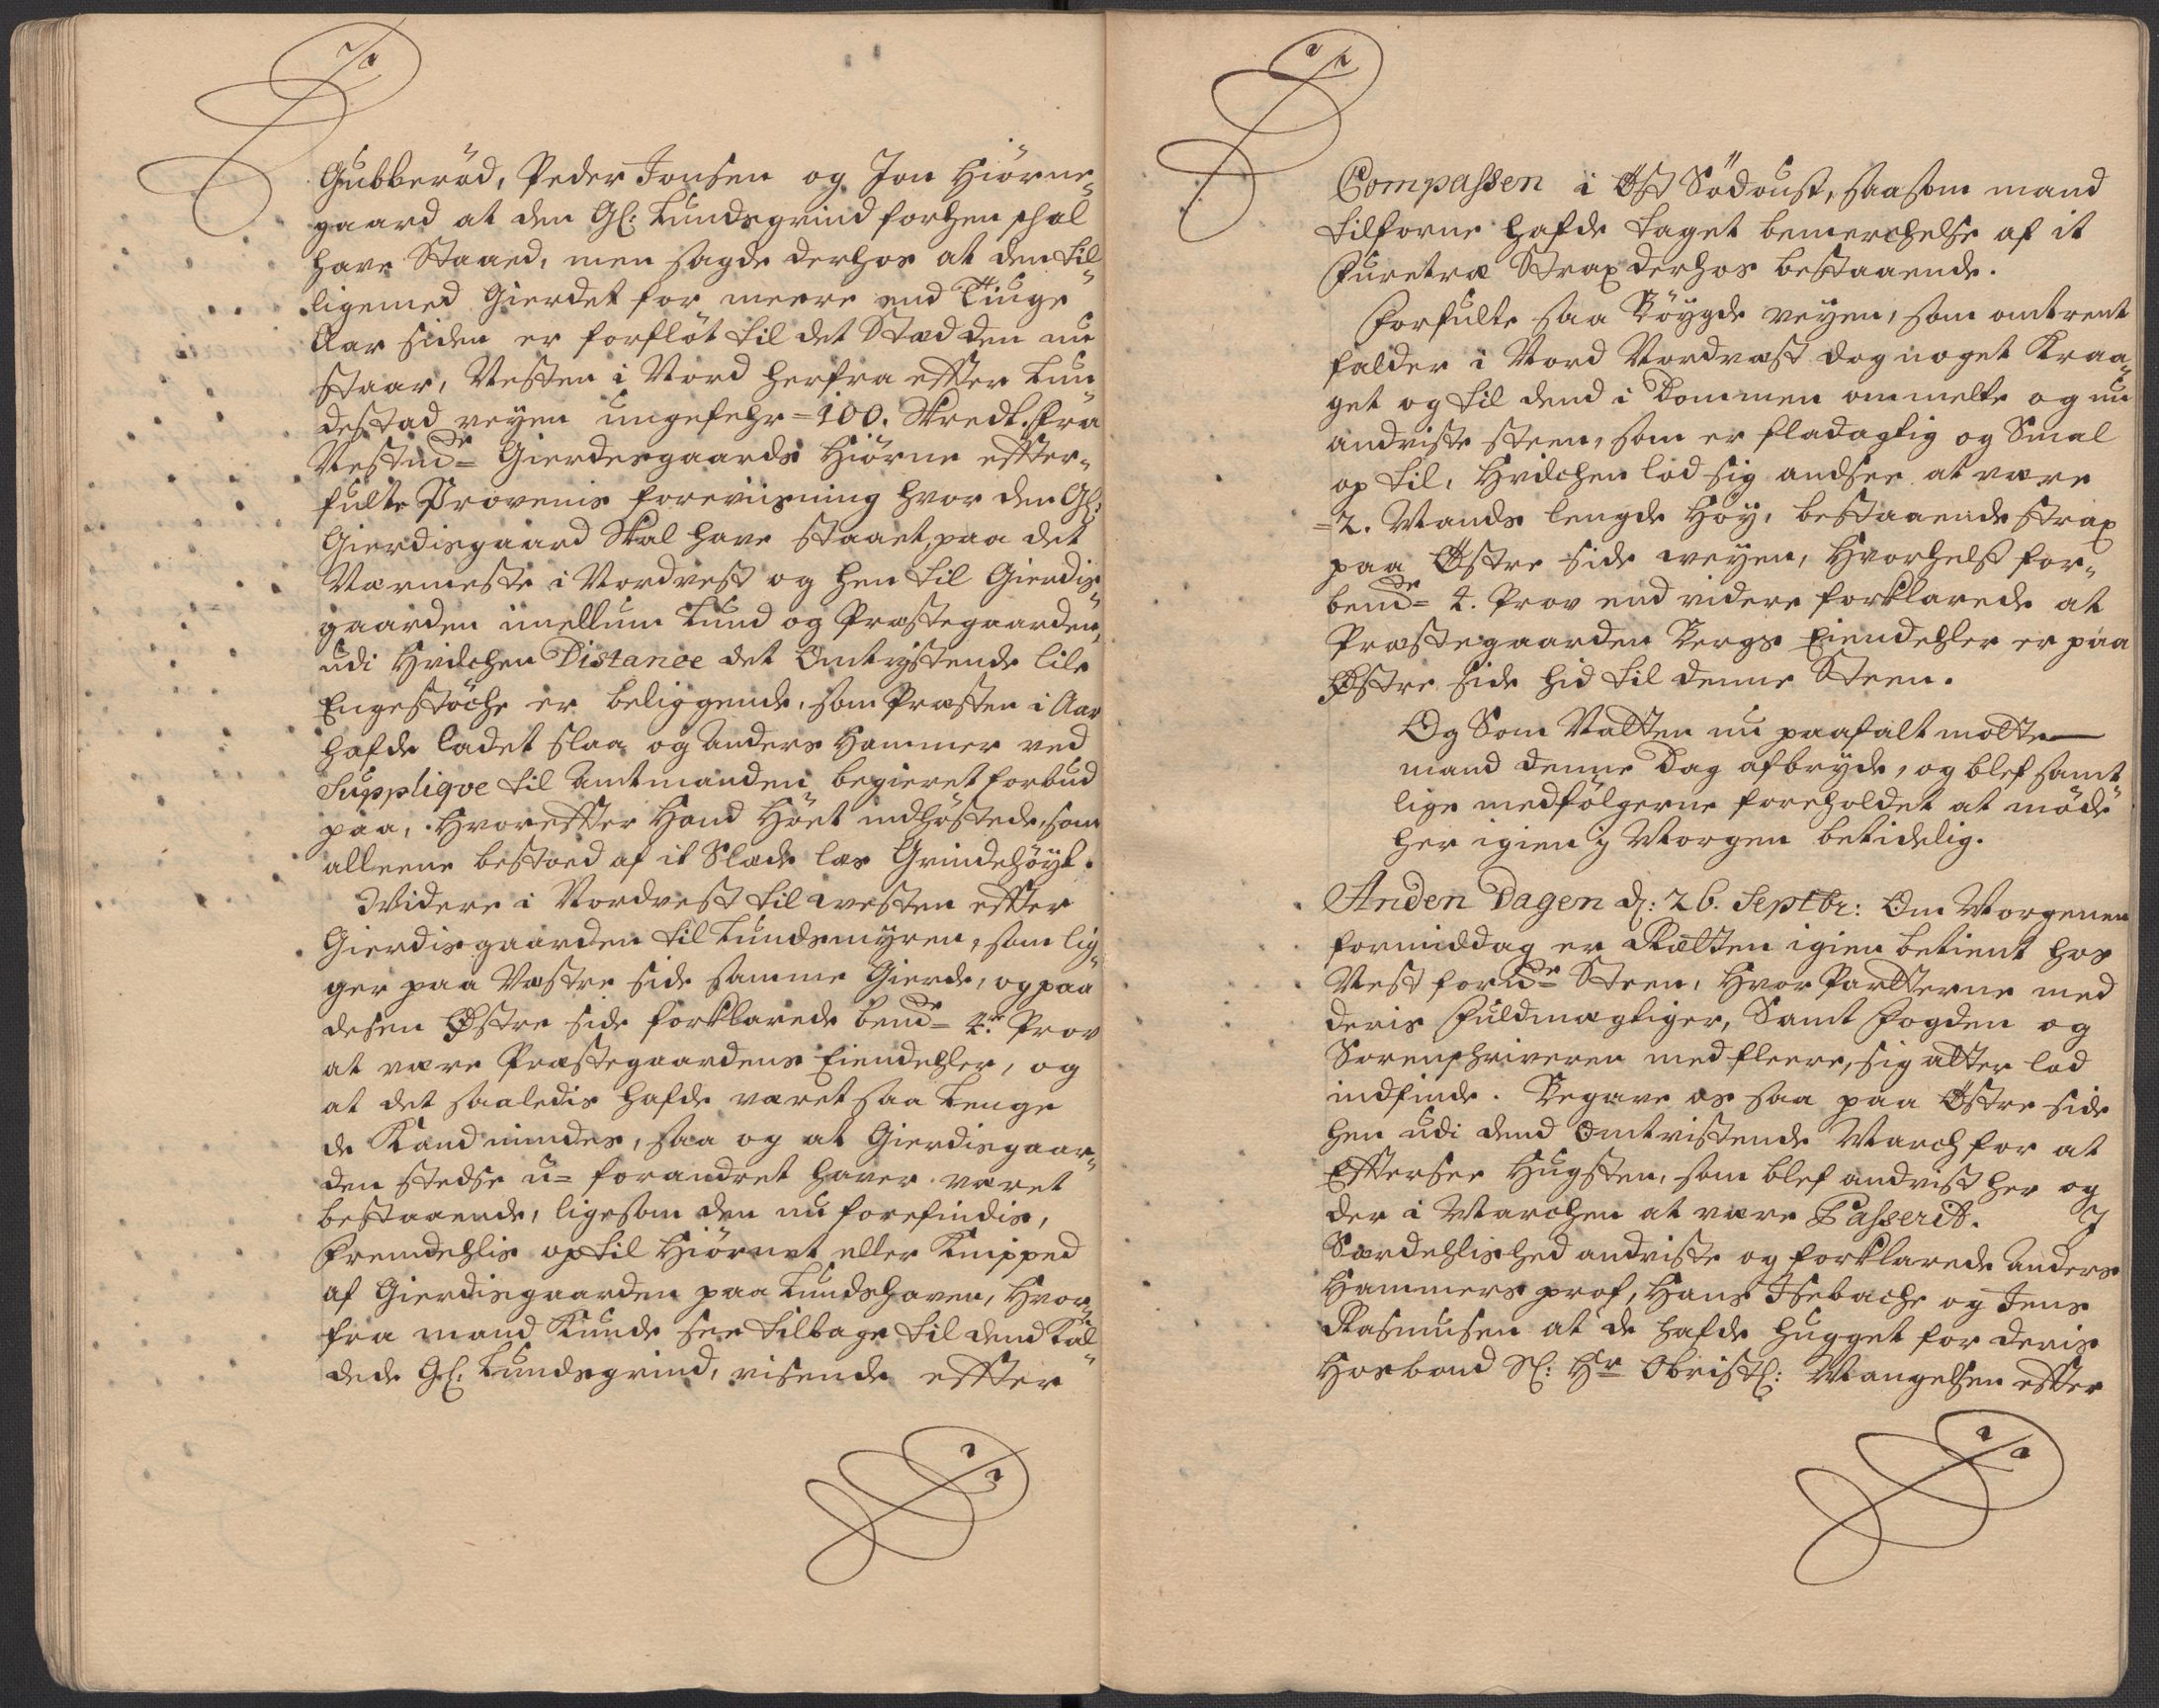 Gubberöd, Peder Jonsen og Jon Hiörne„
gaard at den Gl: Lundsgrind forhen schal
have Staaed, men sagde derhos at den til„
ligemed Gierdet for meere end Tiuge
Aar siden er forfløt til det Stæd den nu
staar, Vesten i Nord herfra effter Lun„
destad veyen ungefehr =100. Skredt. fra
Nestnd= Gierdesgaards Hiörne effter„
fulte Provenis foreviisning hvor den Gl:
Gierdisgaard Skal have staaet, paa det
Nærmeste i Nordvest og hen til Gierdis„
gaarden imellum Lund og Præstegaarden,
udi Hvilchen Distance det Omtvistende lile
Engestöche er beliggende, som Præsten i Aar
hafde ladet slaa og Anders Hammer ved
Supplique til Amtmanden begieret forbud
paa, Hvoreffter Hand Höet indhöstede, som
alleene bestoed af it Slæde læs Grindehöyt.
Widere i Nordvest til westen effter
Gierdisgaarden til Lundsmyren, som lig„
ger paa Væstre side samme Gierde, og paa
desen Østre side forklarede bemde= 4re Prov
at være Præstegaardens Eiendehler, og
at det saaledis hafde været saa Lenge
de Kand mindes, saa og at Gierdisgaar„
den stedse u= forandret haver været
bestaaende, ligesom den nu forefindis,
Fremdehlis op til Hiörnet eller Knipped
af Gierdisgaarden paa Lundshaven, Hvor„
fra mand Kunde see tilbage til dend Kal„
dede Gl: Lundsgrind, visende effter
Compassen i Øst Södoust, saasom mand
tilforne hafde taget bemerchelse af it
Furetræ Strax derhos bestaaende.
Forfulte saa Böygde veyen, som omtrent
falder i Nord Nordvæst dog noget Kraa„
get og til dend i Dommen ommelte og nu
andviste steen, som er fladagtig og Smal
op til, Hvilchen lod sig andsee at være
=2. Mands lengde Höy, bestaaende strax
paa Østre side weyen, Hvorhelst for„
bemde= 4. Prov end videre forklarede at
Præstegaarden Bergs Eiendehler er paa
Østre side hid til denne Steen.
Og Som Natten nu paafalt motte
mand denne Dag afbryde, og blef samt„
lige medfölgerne foreholdet at möde
her igien i Morgen betidelig.
Anden Dagen d: 26. Septbr: Om Morgenen
formiddag er Rætten igien betient hos
Nest forde= Steen, Hvor Partterne med
deris Fuldmægtiger, Samt Fogden og
Sorenschriveren med fleere, sig atter lod
indfinde. Begave os saa paa Østre side
hen udi dend Omtvistende March for at
Effterse Hugsten, som blef andvist her og
der i Marchen at være Passerit. I
Særdehlished andviste og forklarede Anders
Hammers prof, Hans Isebache og Jens
Rasmusen at de hafde hugget for deris
Hosbond Sl: Hr Obristl: Mangelsen effter